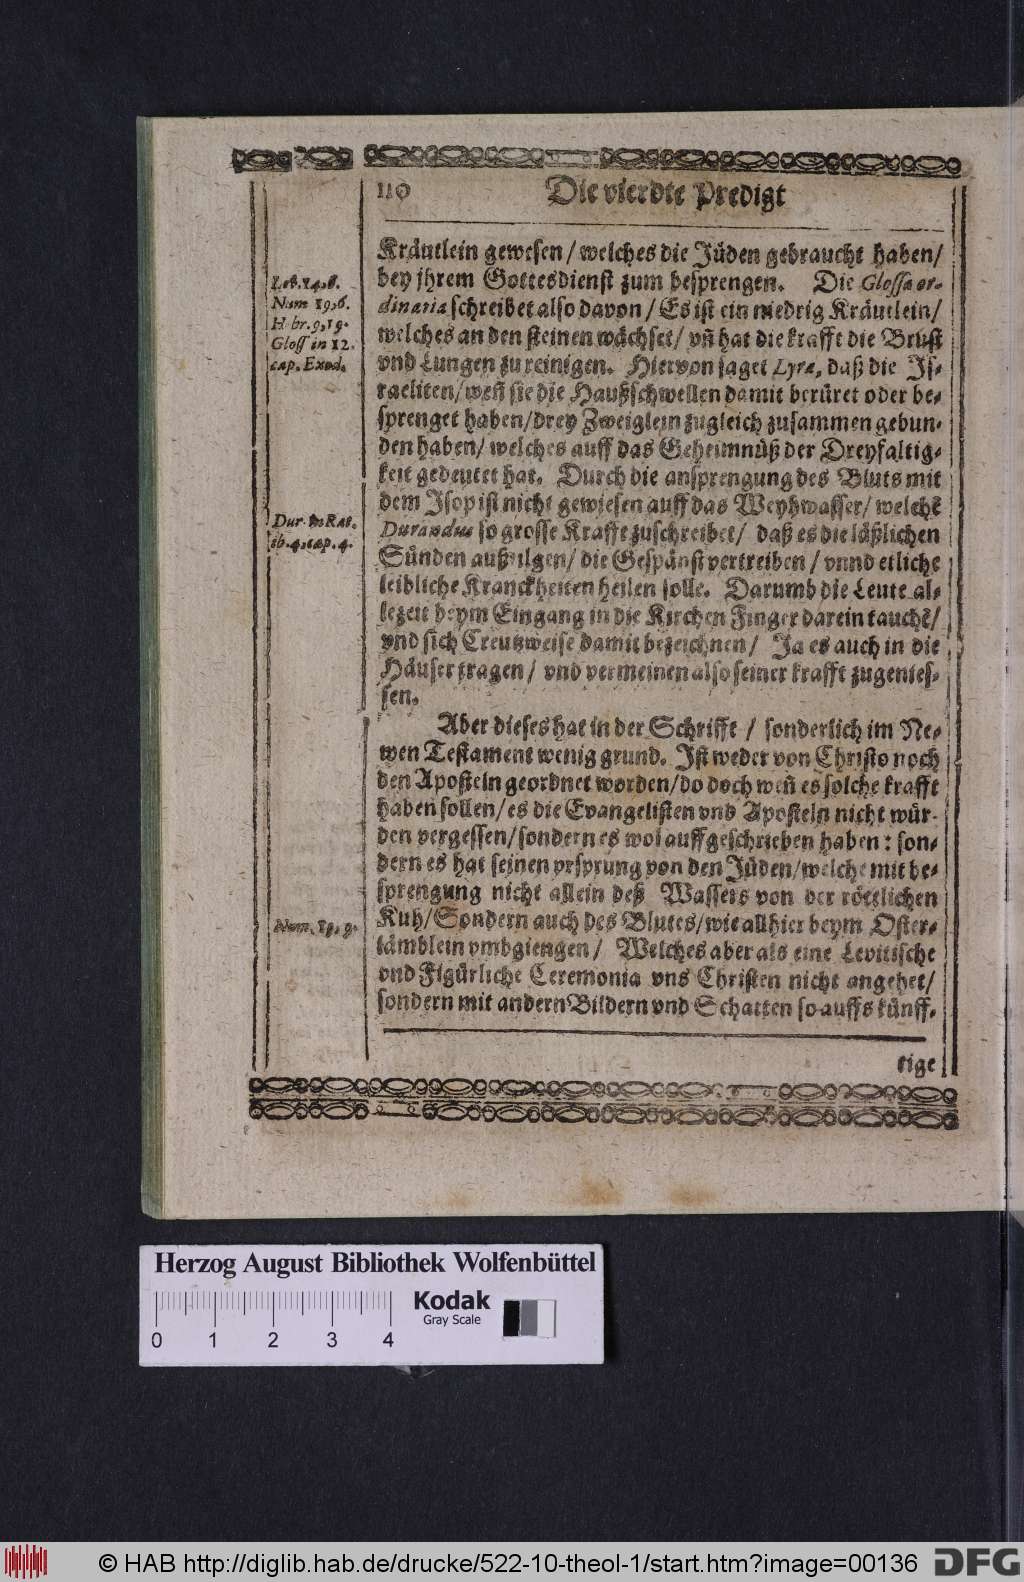 110 Die vierdte Predigt
Kräutlein gewesen / welches die Jüden gebraucht haben/
bey jhrem Gottesdienst zum besprengen. Die Glossa or-
dinaria schreibet also davon / Es ist ein niedrig Kräutlein/
welches an den steinen wächset/ vn̄ hat die krafft die Brust
vnd Lungen zu reinigen. Hiervon saget Lyra, daß die Js-
raeliten/ weñ sie die Haußschwellen damit berüret oder be-
sprenget haben/ drey Zweiglein zugleich zusammen gebun-
den haben/ welches auff das Geheimnüß der Dreyfaltig-
keit gedeutet hat. Durch die ansprengung des Bluts mit
dem Jsop ist nicht gewiesen auff das Weyhwasser/ welchē
Durandus so grosse Krafft zuschreibet/ daß es die läßlichen
Sünden außtilgen/ die Gespänst vertreiben / vnnd etliche
leibliche Kranckheiten heilen solle. Darumb die Leute al-
lezeit beym Eingang in die Kirchen Finger darein tauchē/
vnd sich Creutzweise damit bezeichnen / Ja es auch in die
Häuser tragen / vnd vermeinen also seiner krafft zugenies-
sen.
Aber dieses hat in der Schrifft / sonderlich im Ne-
wen Testament wenig grund. Jst weder von Christo noch
den Aposteln geordnet worden/ do doch weñ es solche krafft
haben sollen/ es die Evangelisten vnd Aposteln nicht wür-
den vergessen/ sondern es wol auffgeschrieben haben: son-
dern es hat seinen vrsprung von den Jüden/ welche mit be-
sprengung nicht allein deß Wassers von der röttlichen
Kuh/ Sondern auch des Blutes/ wie allhier beym Oster-
lämblein vmbgiengen / Welches aber als eine Levitische
vnd Figürliche Ceremonia vns Christen nicht angehet/
sondern mit andern Bildern vnd Schatten so auffs künff-
tige
Lev. 14, 6.
Num 19, 6.
H br. 9, 19.
Gloss in 12.
cap. Exod.
Dur. in Rat.
lib. 4, cap. 4.
Num. 19, 9.
Herzog August Bibliothek Wolfenbüttel
Kodak
Gray Scale
0 1 2 3 4
© HAB http://diglib.hab.de/drucke/522-10-theol-1/start.htm?image=00136 DFG